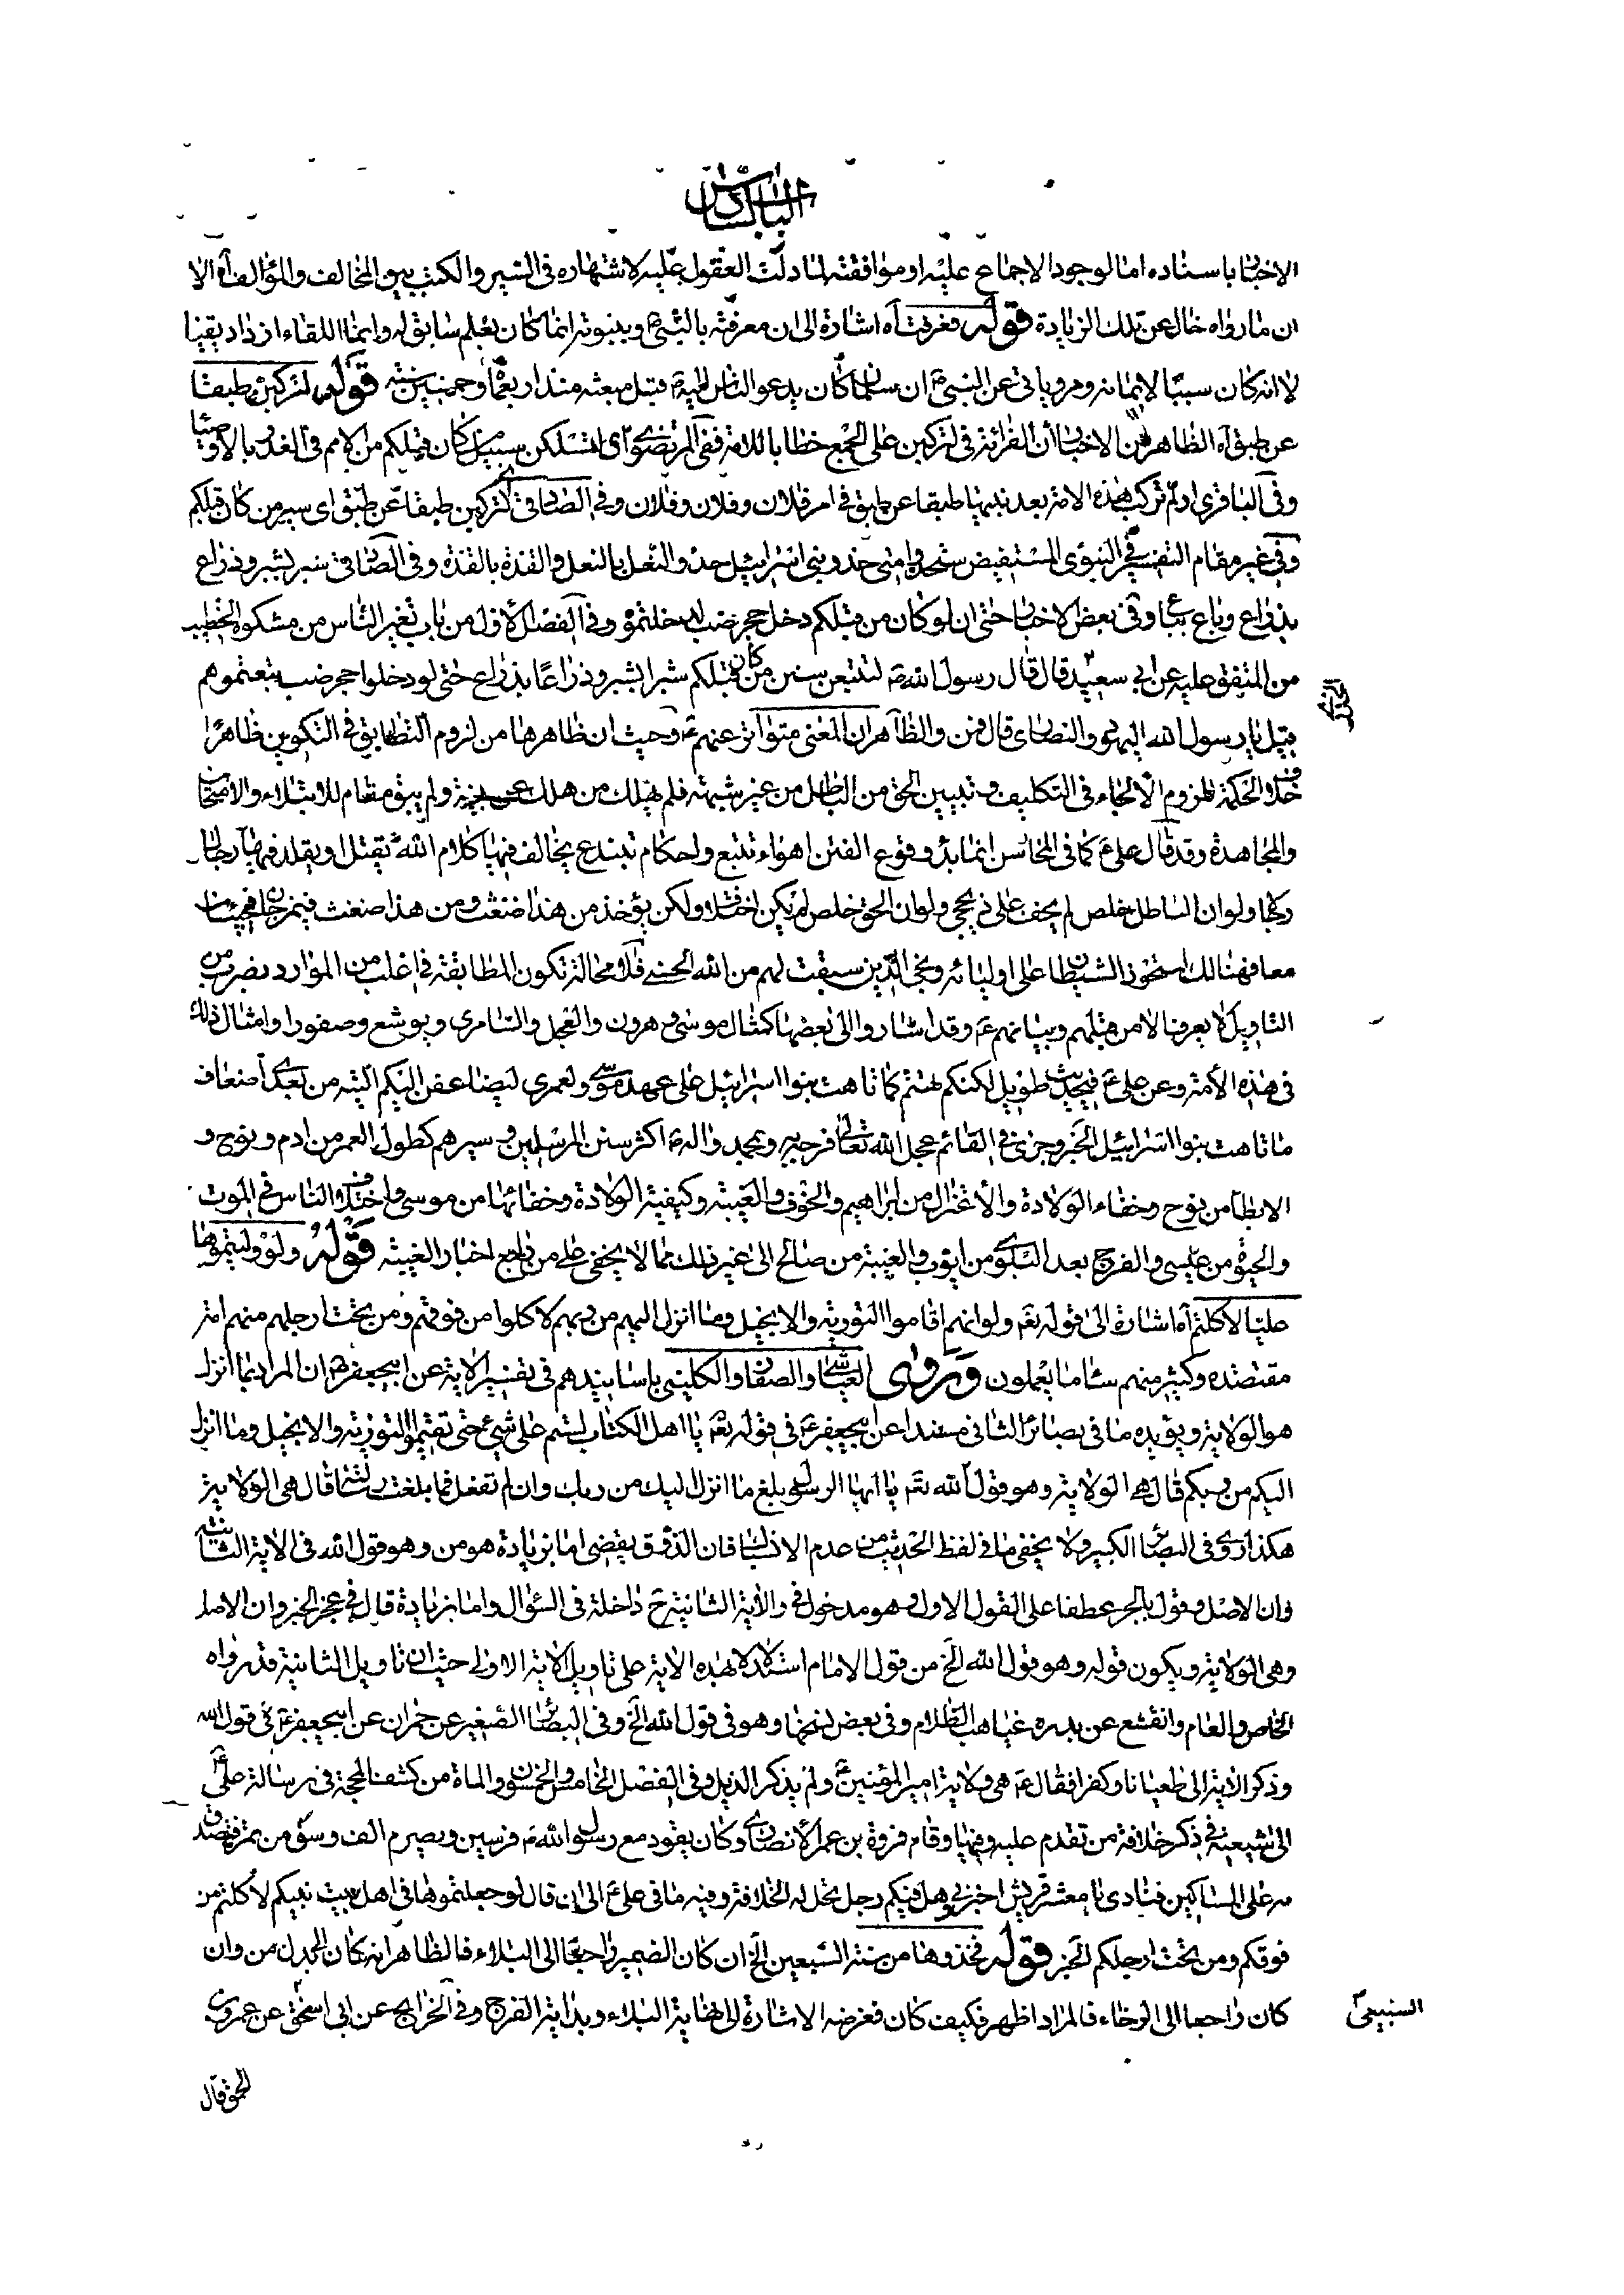 الباب السادس
الاخبار باسناده اما لوجود الاجماع عليه او موافقته لما دلت العقول عليه لاشتهاره فى السير والكتب بين المخالف والمؤالف او الا
ان ما رواه خال عن تلك الزيادة قوله فعرفت آه اشارة الى ان معرفته بالنبى ص وبنبوته انما كان بعلم سابق له وانما اللقاء ازداد يقينا
لا انه كان سببا لايمانه ومر وياتى عن النبى ص ان سلمان كان يدعو الناس اليه قبل مبعثه منذ اربعمأة وخمسين سنة قوله لتركبن طبقا
عن طبق آه الظاهر من الاخبار ان القرائة فى لتركبن على الجمع خطابا للامة ففى المرتضوى اى لتسلكن سبيل من كان قبلكم من الامم فى الغدر بالاوصياء
وفى الباقرى او لم تركب هذه الامة بعد نبيها طبقا عن طبق فى امر فلان وفلان وفلان وفى الصادقى لتركبن طبقا عن طبق اى سير من كان قبلكم
وفى غير مقام التفسير ففى النبوى المستفيض ستحذو امتى حذو بنى اسرائيل حذو النعل بالنعل والقذة بالقذة وفى الصادقى شبر بشبر وذراع
بذراع وباع بباع وفى بعض الاخبار حتى ان لو كان من قبلكم دخل جحر ضب لدخلتموه وفى الفصل الاول من باب تغير الناس من مشكوة الخطيب
من المتفق عليه عن ابى سعيد قال قال رسول الله ص لتتبعن سنن من كان قبلكم شبرا بشبر وذراعا بذراع حتى لو دخلوا جحر ضب تبعتموهم
الخدرى
قيل يا رسول الله اليهود والنصارى قال فمن والظاهر ان المعنى متواتر عنهم ع وحيث ان ظاهرها من لزوم التطابق فى التكوين ظاهرا
خلاف الحكمة للزوم الالجاء فى التكليف وتبيين الحق من الباطل من غير شبهة فلم يهلك من هلك عن بينة ولم يبق مقام للابتلاء والامتحان
والمجاهدة وقد قال على ع كما فى المحاسن انما بدؤ وقوع الفتن اهواء تتبع واحكام تبتدع يخالف فيها كلام الله يقلد فيها رجال
رجالا ولو ان الباطل خلص لم يخف على ذى حجى ولو ان الحق خلص لم يكن اختلاف ولكن يؤخذ من هذا ضغث ومن هذا ضغث فيمزجان فيجيئان
معا فهنالك استحوذ الشيطان على اوليائه ونجى الذين سبقت لهم من الله الحسنى فلا محالة تكون المطابقة فى اغلب من الموارد بضرب من
التاويل لا يعرف الا من قبلهم وبيانهم ع وقد اشاروا الى بعضها كمثال موسى وهرون والعجل والسامرى ويوشع وصفورا وامثال ذلك
فى هذه الامة وعن على ع فى حديث طويل لكنكم تهتم كما تاهت بنوا اسرائيل على عهد موسى ولعمرى ليضاعفن اليكم التيه من بعدى اضعاف
ما تاهت بنوا اسرائيل الخبر وجرى فى القائم عجل الله تعالى فرجه بمحمد واله ص اكثر سنن المرسلين وسيرهم كطول العمر من ادم ونوح و
الابطا من نوح وخفاء الولادة والاعتزال من ابراهيم والخوف والغيبة وكيفية الولادة وخفائها من موسى واختلاف الناس فى الموت
والحيوة من عيسى والفرج بعد البلوى من ايوب والغيبة من صالح الى غير ذلك مما لا يخفى على من راجع اخبار الغيبة قوله ولو وليتموها
عليا لاكلتم آه اشارة الى قوله تع ولو انهم اقاموا التورية والانجيل وما انزل اليهم من ربهم لاكلوا من فوقهم ومن تحت ارجلهم منهم امة
مقتصدة وكثير منهم ساء ما يعملون وروى العياشى والصفار والكلينى باسانيدهم فى تفسير الاية عن ابيجعفر ع ان المراد بما انزل
هو الولاية ويؤيده ما فى بصائر الثانى مسندا عن ابيجعفر ع فى قوله تع يا اهل الكتاب لستم على شىء حتى تقيموا التورية والانجيل وما انزل
اليكم من ربكم قال هى الولاية وهو قول الله تع يا ايها الرسول بلغ ما انزل اليك من ربك وان لم تفعل فما بلغت رسالته قال هى الولاية
هكذا روى فى البصائر الكبير ولا يخفى ما فى لفظ الحديث من عدم الانسباك فان الذوق يقضى اما بزيادة هو من وهو قول الله فى الاية الثانية
وان الاصل وقول بالجر عطفا على القول الاول وهو مدخول فى والاية الثانية ح داخلة فى السؤال واما بزيادة قال فى عجز الخبر وان الاصل
وهى الولاية ويكون قوله وهو قول الله الخ من قول الامام استدلالا بهذه الاية على تاويل الاية الاولى حيث ان تاويل الثانية قد رواه
الخاص والعام وانقشع عن بدره غياهب الظلام وفى بعض نسخها وهو فى قول الله الخ وفى البصائر الصغير عن حمران عن ابيجعفر ع فى قول الله
وذكر الاية الى طغيانا وكفرا فقال ع هى ولاية امير المؤمنين ع ولم يذكر الذيل وفى الفصل الخامس والخمسون والمأة من كشف المحجة فى رسالة على ع
الى شيعته فى ذكر خلافة من تقدم عليه وفيها وقام فروة بن عمر الانصارى وكان يقود مع رسول الله ص فرسين ويصرم الف وسق من تمر فتصدق
به على المساكين فنادى يا معشر قريش اخبرونى هل فيكم رجل تحل له الخلافة وفيه ما فى على ع الى ان قال لو جعلتموها فى اهل بيت نبيكم لاكلتم من
فوقكم ومن تحت ارجلكم الخبر قوله فخذوها من سنة السبعين الخ ان كان الضمير راجعا الى البلاء فالظاهر انه كان الى بدل من وان
كان راجعا الى الرخاء فالمراد اظهر وكيف كان فغرضه الاشارة الى نهاية البلاء وبداية الفرج وفى الخرايج عن ابى اسحق عن عمرو بن
السبيعى
الحمق قال